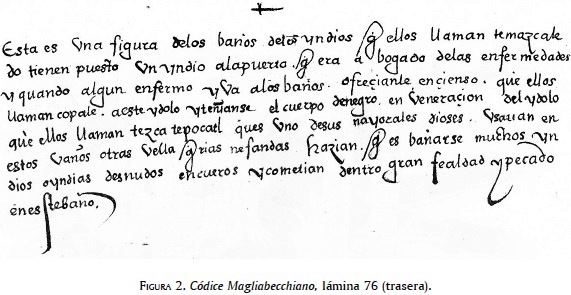 Esta es vna figura delos baños delos yndios q̃ ellos llaman temazcale
do tienen puesto vn yndio alapuerta. q̃ era abogado delas enfermedades
y quando algun enfermo yva alos baños. ofrecianle encienso. que ellos
llaman copale. aeste ydolo yteñianse el cuerpo denegro. en veneraçion del ydolo
que ellos llaman tezcatepocatl ques vno desus mayorales dioses. vsauan en
estos vaños otras vellaq̃rias nefandas hazian. q̃ es bañarse muchos yn
dios oyndias desnudos encueros ycometian dentro gran fealdad ypecado
eneste baño.
FIGURA 2. Códice Magliabecchiano, lámina 76 (trasera).